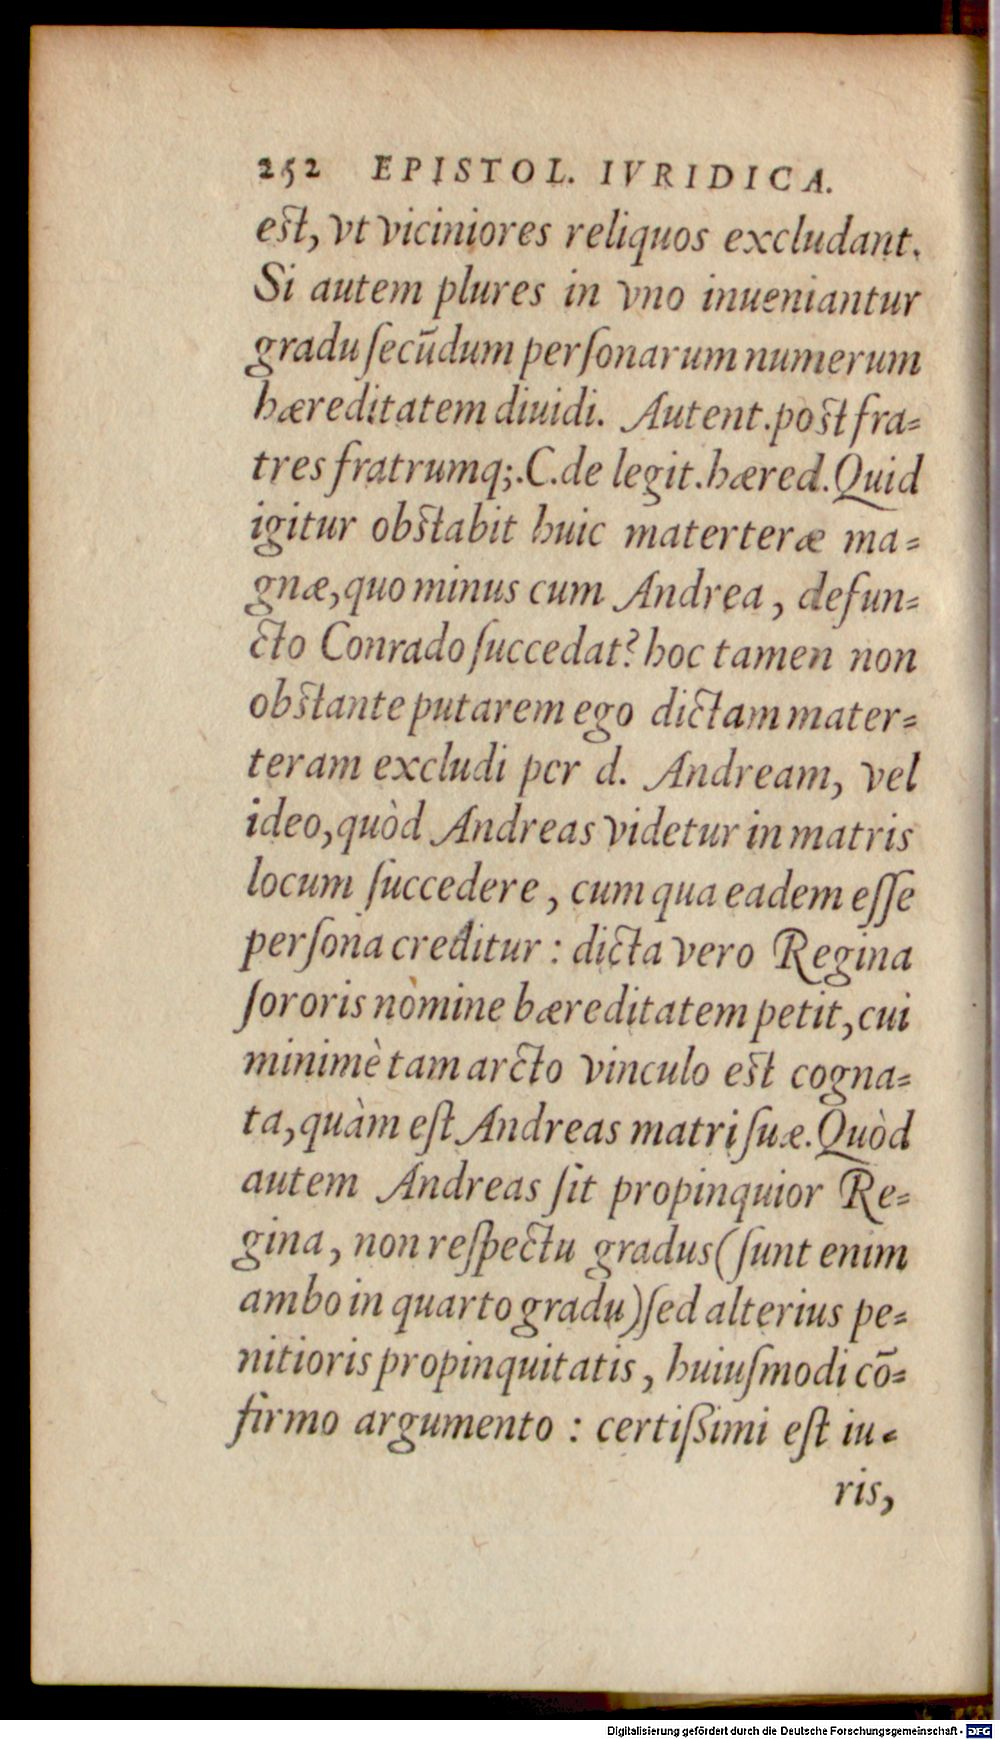 252 EPISTOL. IVRIDICA.
est, vt viciniores reliquos excludant.
Si autem plures in vno inueniantur
gradu ſecūdum perſonarum numerum
hæreditatem diuidi. Autent. post fra-
tres fratrumq;. C. de legit. hæred. Quid
igitur obstabit huic materteræ ma-
gnæ, quo minus cum Andrea, defun-
cto Conrado ſuccedat? hoc tamen non
obstante putarem ego dictam mater-
teram excludi per d. Andream, vel
ideo, quòd Andreas videtur in matris
locum ſuccedere, cum qua eadem eſſe
perſona creditur: dicta vero Regina
ſororis nomine hæreditatem petit, cui
minimè tam arcto vinculo est cogna-
ta, quàm eſt Andreas matri ſuæ. Quòd
autem Andreas ſit propinquior Re-
gina, non reſpectu gradus (ſunt enim
ambo in quarto gradu) ſed alterius pe-
nitioris propinquitatis, huiuſmodi cō-
firmo argumento: certißimi eſt iu-
ris,
Digitalisierung gefördert durch die Deutsche Forschungsgemeinschaft - DFG